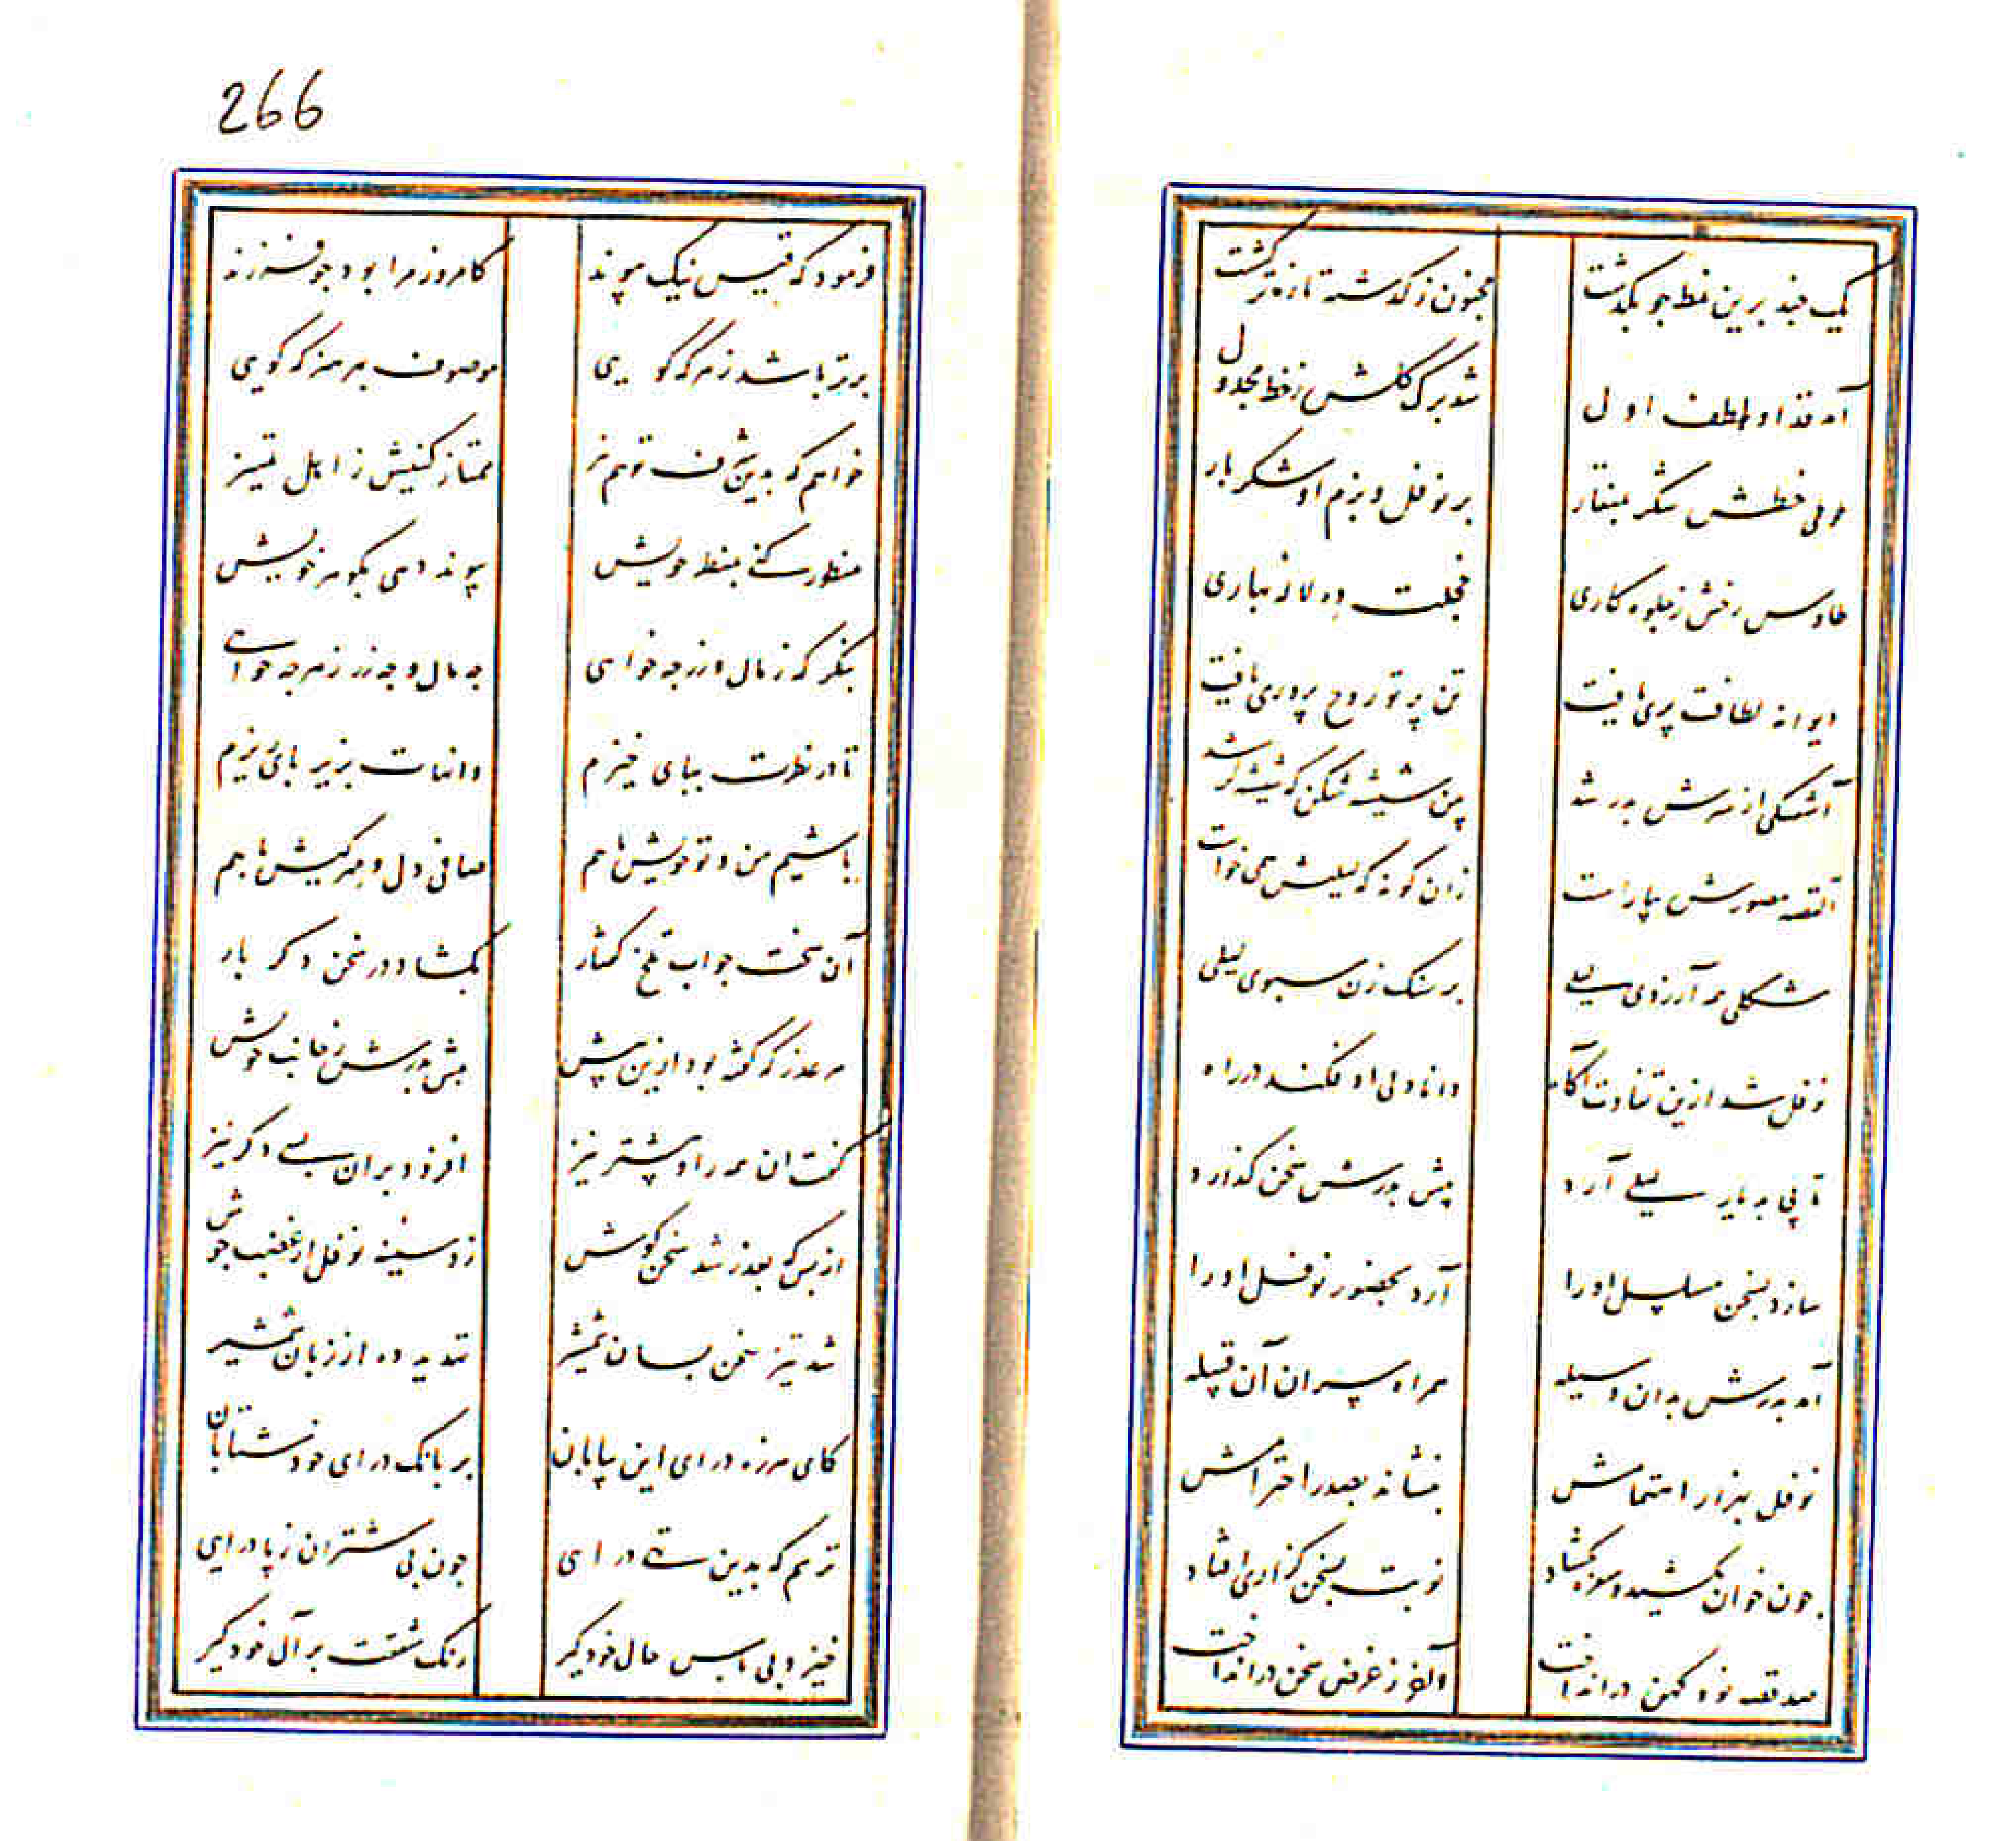 266
یک چند برین نمط چو بگذشت مجنون ز گذشته تازه تر گشت
آمد قد او بلطف اول شد برگ گلش ز خط مجدول
طوطی خطش شکر بمنقار بر نوفل و بزم او شکر بار
طاوس رخش ز جلوه کاری خجلت ده لاله بهاری
دیوانه لطافت پری یافت تن پرتو روح پروری یافت
آشفتگی از سرش بدر شد شیشه شکن که شیشه گر شد
القصه صورتش بیاراست زان گونه که لیلیش همی خواست
شکلی همه آرزوی لیلی بر سنگ زن سبوی لیلی
نوفل شد ازین تفاوت آگاه دانا دلی او فکند در راه
تا پی به دیار لیلی آرد پیش پدرش سخن گذارد
سازد بسخن مسلسل او را آرد بحضور نوفل او را
آمد پدرش بدان وسیله همراه سران آن قبیله
نوفل بهزار احتشامش بنشاند بصدر احترامش
چون خوان بکشید و سفره بگشاد نوبت بسخن گزاری افتاد
صد قصه نو و کهن در انداخت و آخر ز غرض سخن در انداخت
فرمود که قیس نیک پیوند کامروز مرا بود چو فرزند
برتر باشد ز هر که گویی موصوف بهر هنر که گویی
خواهم که بدین شرف تو هم نیز ممتاز کنیش ز اهل تمییز
منظور کنی بمنظر خویش پیوند دهی بگوهر خویش
بنگر که ز مال و زر چه خواهی چه مال و چه زر ز هر چه خواهی
تا در نظرت بپای خیزم وانهات بزیر پای ریزم
باشیم من و تو خویش با هم صافی دل و مهر کیش با هم
آن سخت جواب تلخ گفتار بگشاد در سخن دگر بار
هر عذر که گفته بود ازین پیش پیش پدرش ز جانب خویش
گفت آن همه را و پیشتر نیز افزود بر آن بسی دگر نیز
از بس که بعذر شد سخن کوش زد سینه نوفل از غضب جوش
شد تیز سخن بسان شمشیر تهدید ده از زبان شمشیر
کای هرزه درای این بیابان بر بانگ درای خود شتابان
ترسم که بدین درای چون پی شتران ز پا درایی
خیز و پی پاس حال خود گیر رنگ شفقت بر آل خود گیر